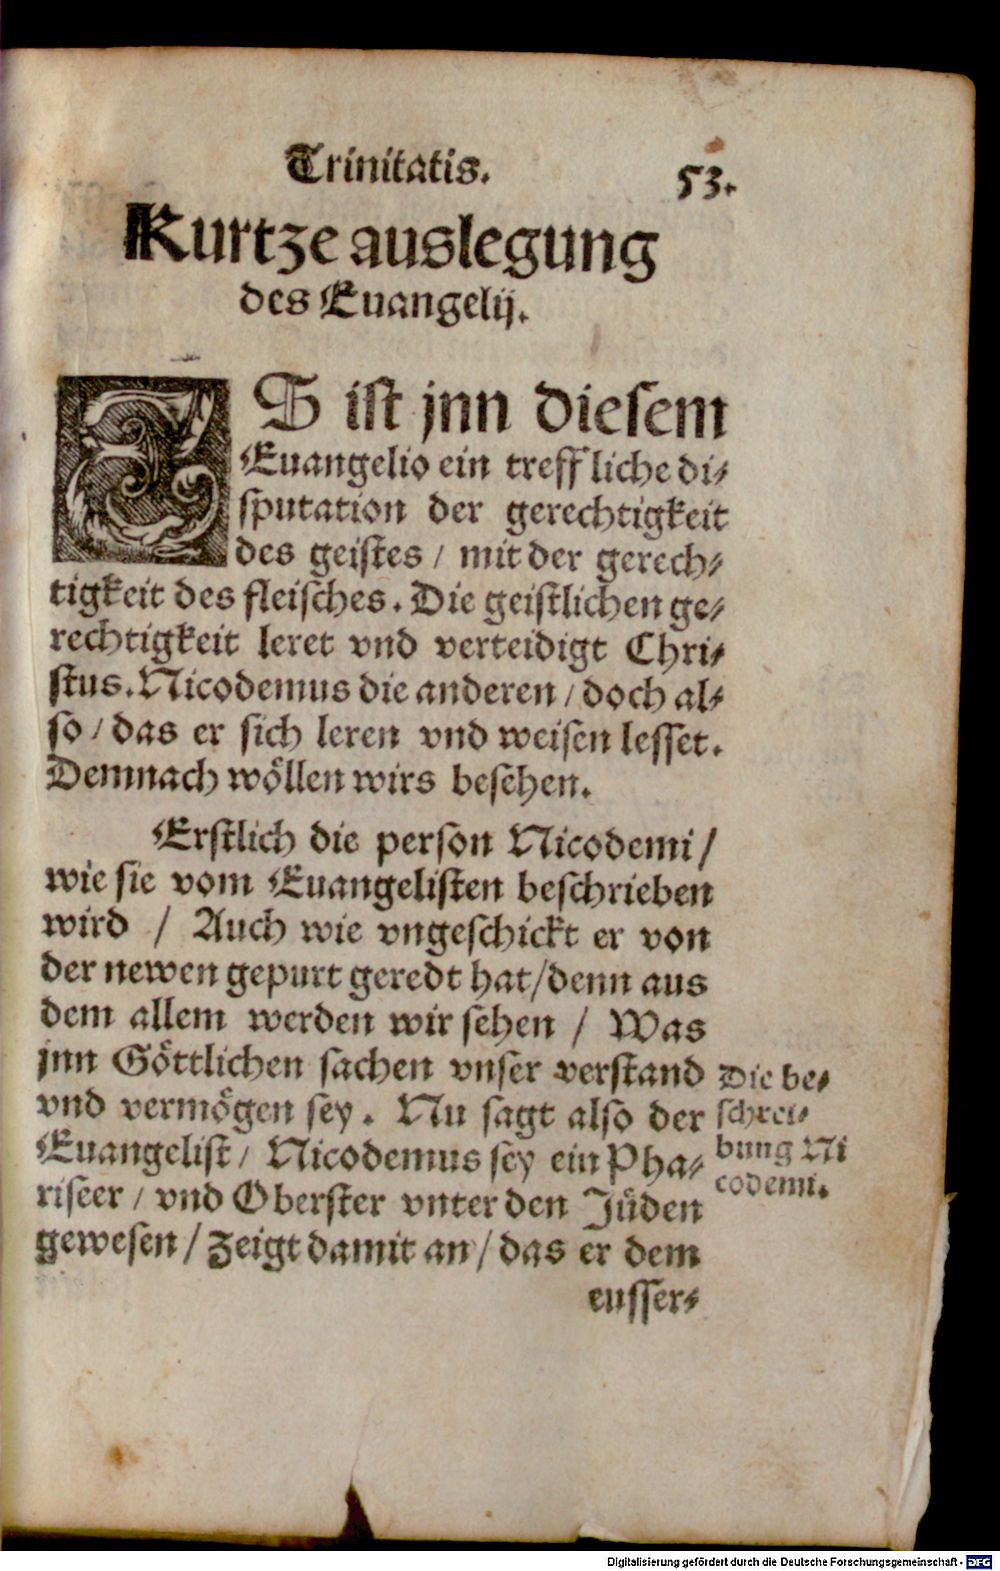 Trinitatis.
53.
Kurtze auslegung
des Euangelij.
ES ist jnn diesem
Euangelio ein treffliche di-
sputation der gerechtigkeit
des geistes / mit der gerech-
tigkeit des fleisches. Die geistlichen ge-
rechtigkeit leret vnd verteidigt Chri-
stus. Nicodemus die anderen / doch al-
so / das er sich leren vnd weisen lesset.
Demnach wöllen wirs besehen.
Erstlich die person Nicodemi /
wie sie vom Euangelisten beschrieben
wird / Auch wie vngeschickt er von
der newen gepurt geredt hat / denn aus
dem allem werden wir sehen / Was
jnn Göttlichen sachen vnser verstand
vnd vermögen sey. Nu sagt also der
Euangelist / Nicodemus sey ein Pha-
riseer / vnd Oberster vnter den Jüden
gewesen / Zeigt damit an / das er dem
eusser-
Die be-
schrei-
bung Ni
codemi.
Digitalisierung gefördert durch die Deutsche Forschungsgemeinschaft - DFG